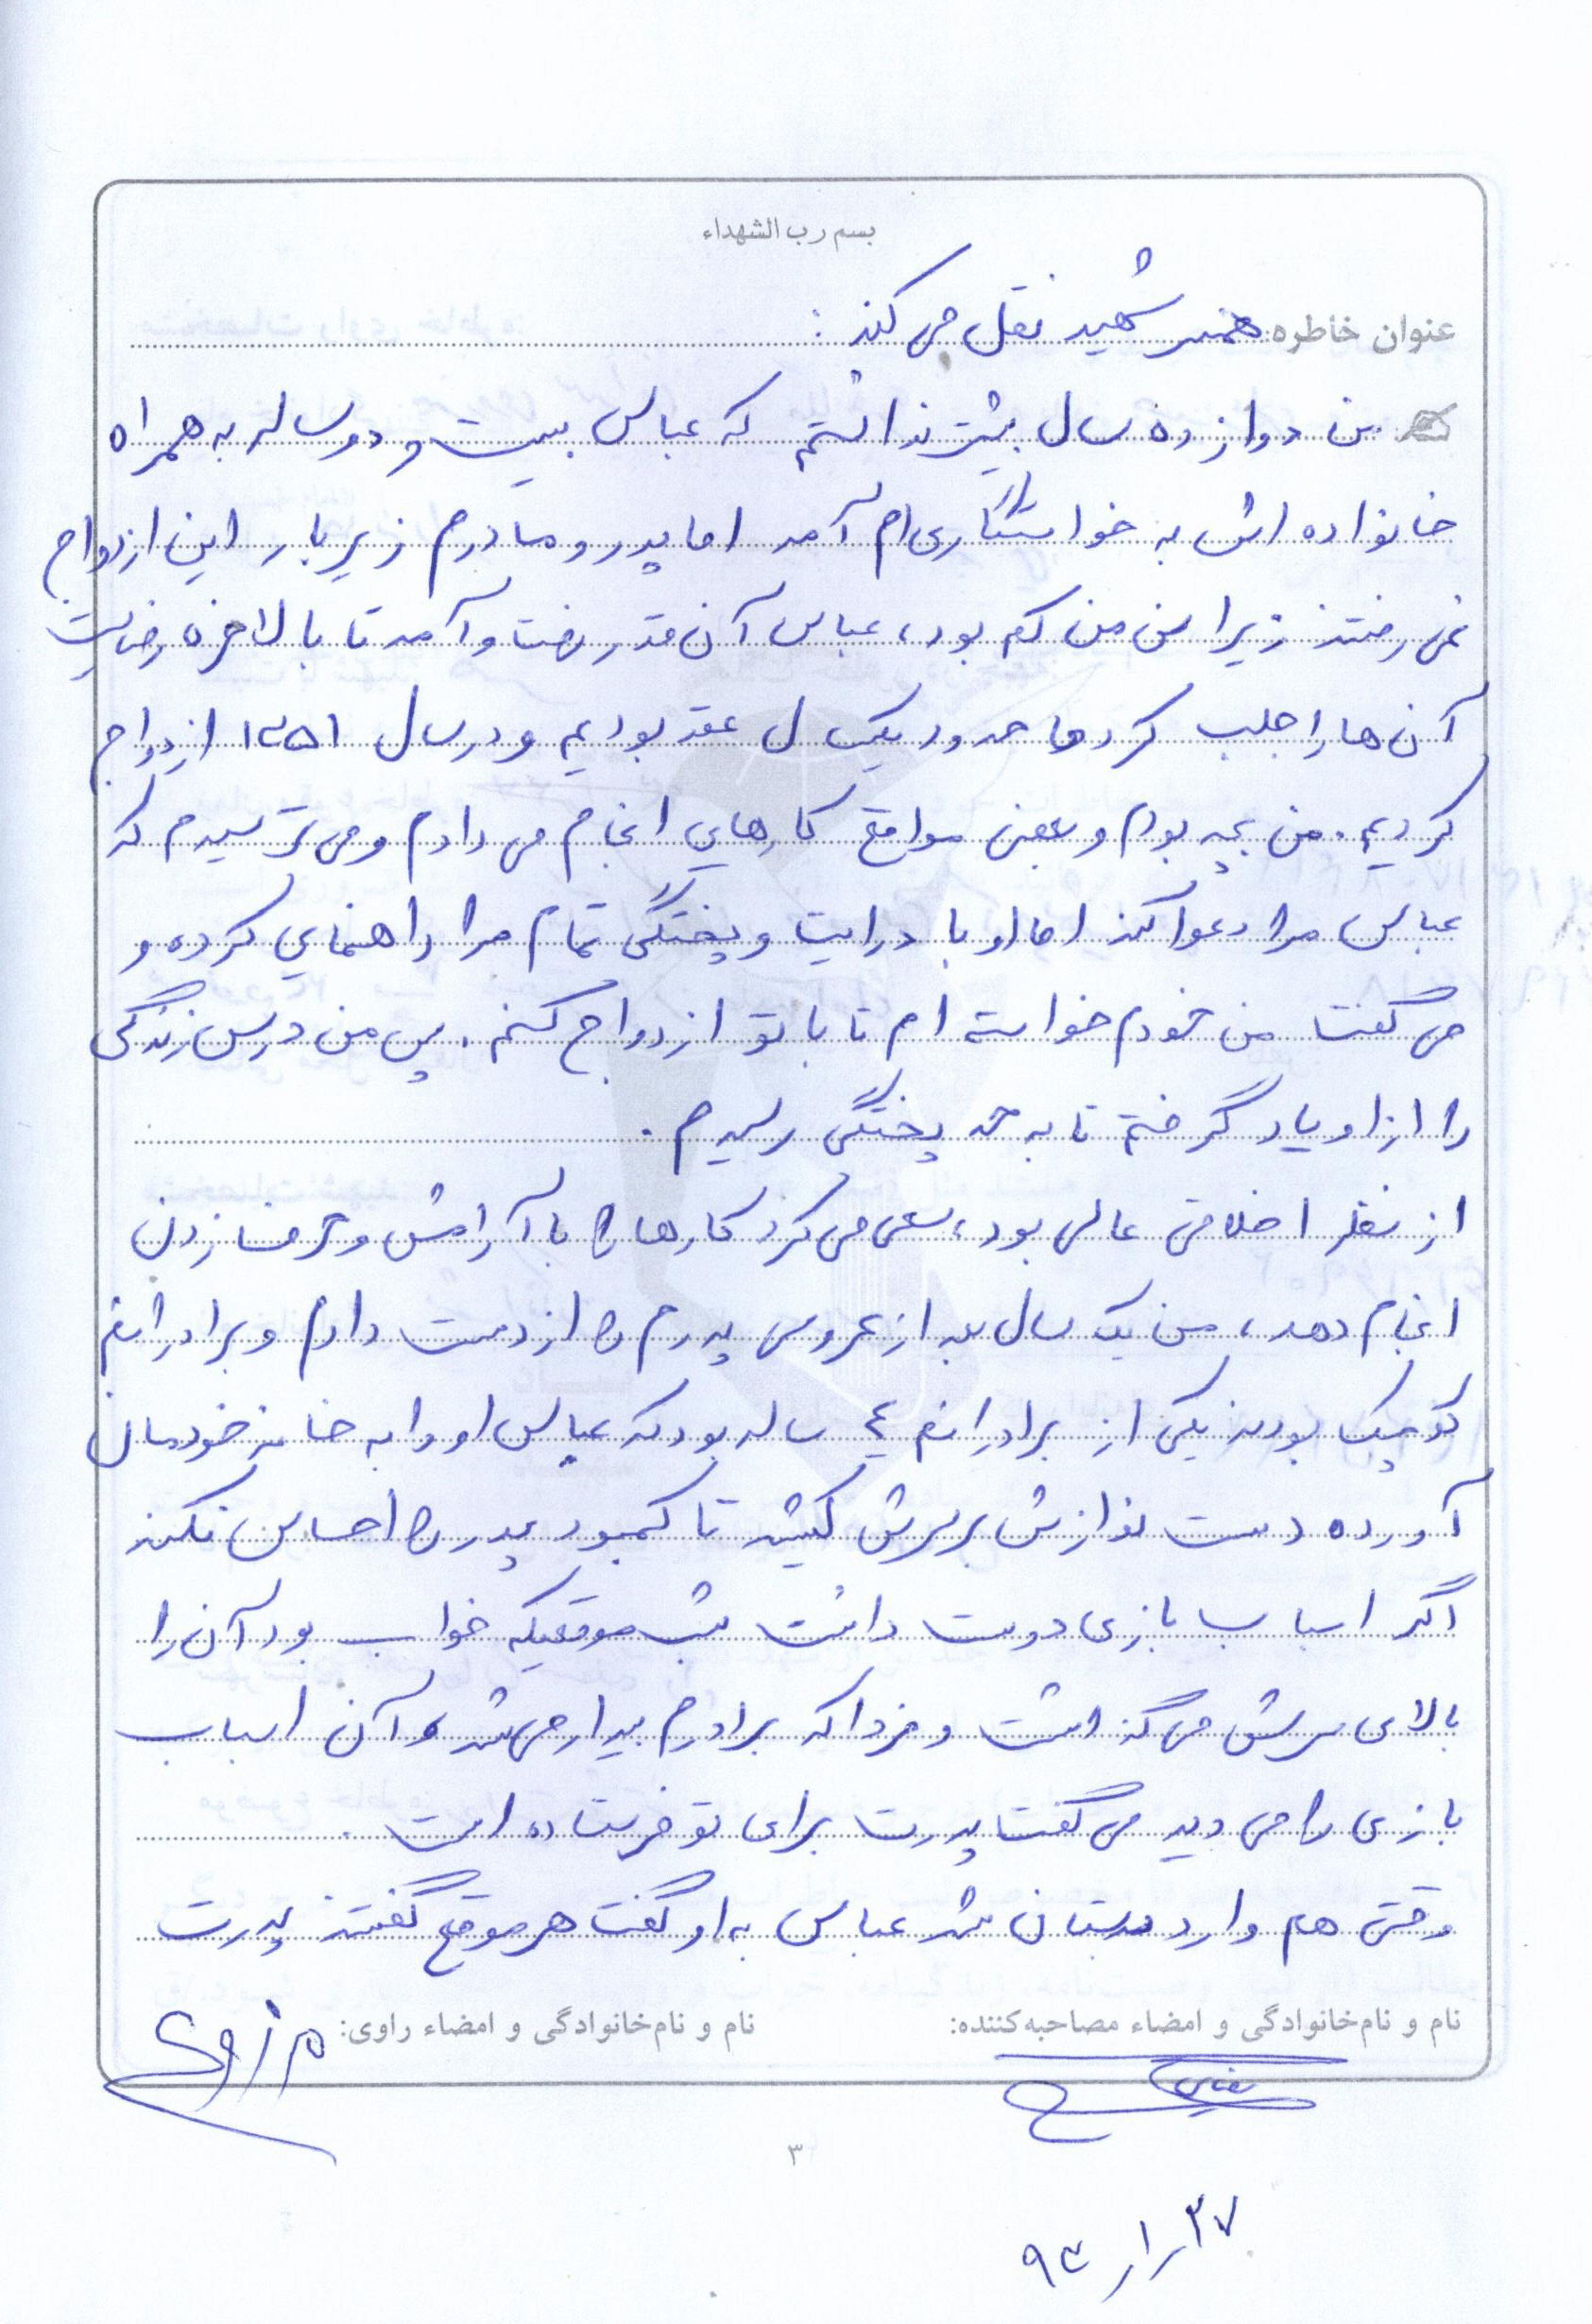 بسم رب الشهداء
عنوان خاطره: همسر شهید نقل می کند :
من دوازده سال بیشتر نداشتم که عباس بیست و دو ساله به همراه
خانواده اش به خواستگاری ام آمد اما پدر و مادرم زیر بار این ازدواج
نمی رفتند زیرا سن من کم بود، عباس آن قدر رفت و آمد تا بالاخره رضایت
آن ها را جلب کرد ما حدود یکسال عقد بودیم و در سال ۱۳۵۱ ازدواج
کردیم. من بچه بودم و بعضی مواقع کارهایی انجام می دادم و می ترسیدم که
عباس مرا دعوا کند اما او با درایت و پختگی تمام مرا راهنمایی کرده و
می گفت من خودم خواسته ام تا با تو ازدواج کنم. پس من درس زندگی
را از او یاد گرفتم تا به حد پختگی رسیدم.
از نظر اخلاقی عالی بود، سعی می کرد کارها را با آرامش و حرف زدن
انجام دهد، من یک سال بعد از عروسی پدرم را از دست دادم و برادرانم
کوچک بودند یکی از برادرانم ٤ ساله بود که عباس او را به خانه خودمان
آورده دست نوازش بر سرش کشید تا کمبود پدر را احساس نکند
اگر اسباب بازی دوست داشت شب موقعیکه خواب بود آن را
بالای سرش می گذاشت و فردا که برادرم بیدار می شد و آن اسباب
بازی را می دید می گفت پدرت برای تو فرستاده است.
وقتی هم وارد دبستان شد عباس به او گفت هر موقع گفتند پدرت
نام و نام‌خانوادگی و امضاء مصاحبه‌کننده:
نام و نام‌خانوادگی و امضاء راوی:
۳
۲۷ / ۱ / ۹۳